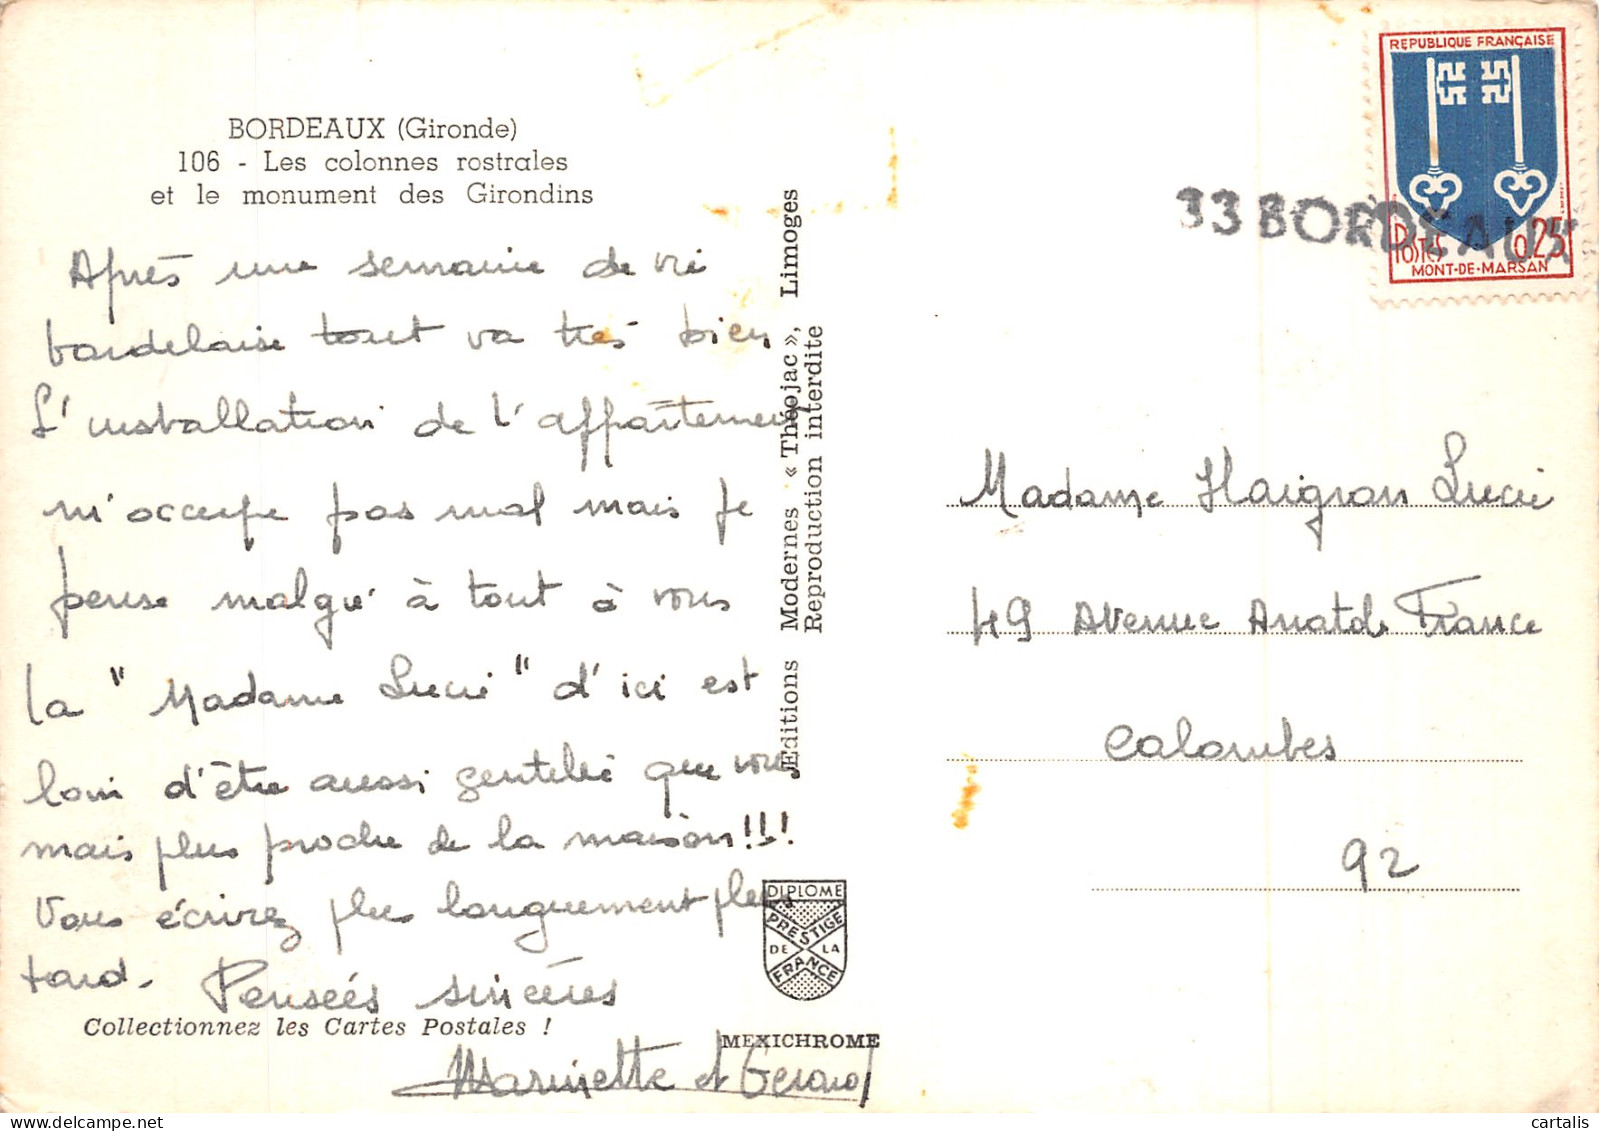 BORDEAUX (Gironde)
106 - Les colonnes rostrales
et le monument des Girondins
Après une semaine de vie
bordelaise tout va très bien
L'installation de l'appartement
m'occupe pas mal mais je
pense malgré à tout à vous
la "Madame Lucie" d'ici est
loin d'être aussi gentille que vous
mais plus proche de la maison!!!
Vous écrirez plus longuement plus
tard. Pensées sincères
Marinette et Gerard
Collectionnez les Cartes Postales !
Editions Modernes « Théojac », Limoges
Reproduction interdite
DIPLOME
PRESTIGE
DE LA
FRANCE
MEXICHROME
REPUBLIQUE FRANÇAISE
POSTES 0.25
MONT-DE-MARSAN
33 BORDEAUX
Madame Haignon Lucie
49 Avenue Anatole France
Colombes
92
cartalis